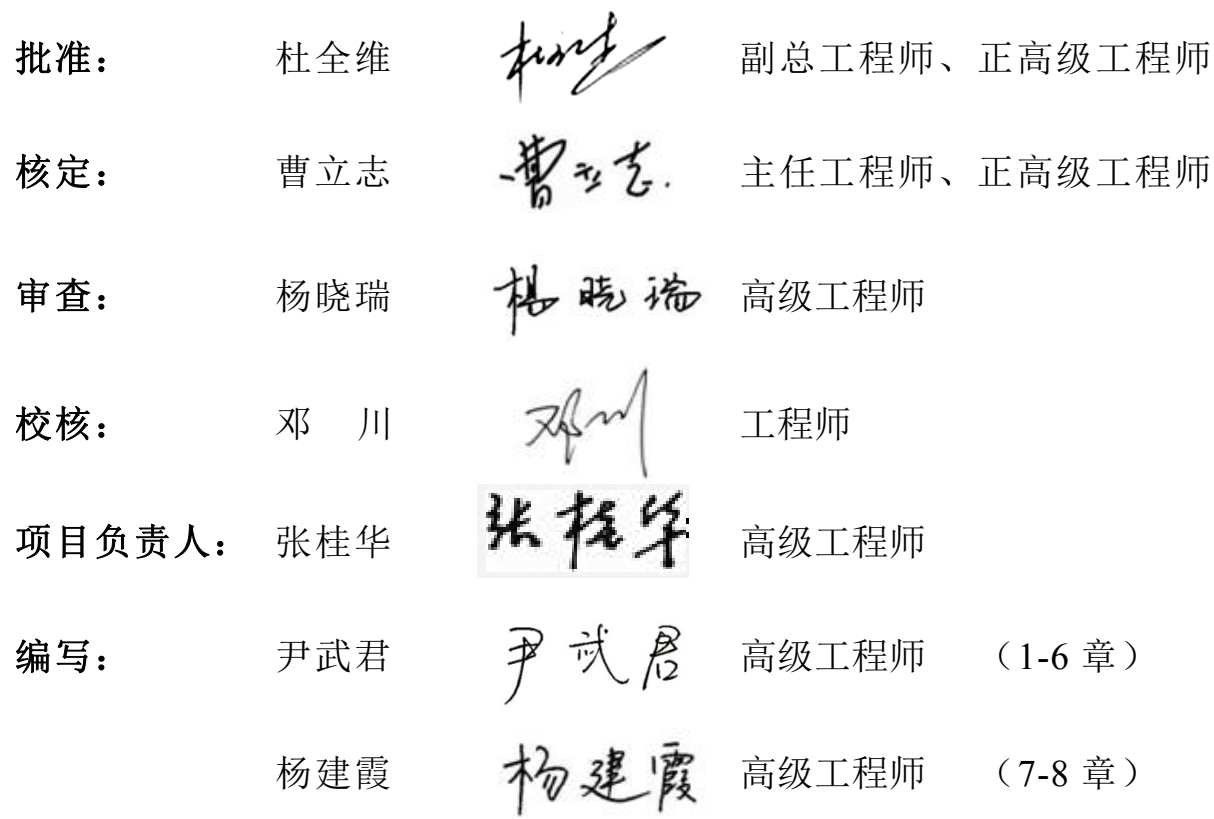 批准： 杜全维 杜全维 副总工程师、正高级工程师
核定： 曹立志 曹立志 主任工程师、正高级工程师
审查： 杨晓瑞 楊晓瑞 高级工程师
校核： 邓 川 邓川 工程师
项目负责人： 张桂华 张桂华 高级工程师
编写： 尹武君 尹武君 高级工程师 （1-6 章）
杨建霞 杨建霞 高级工程师 （7-8 章）